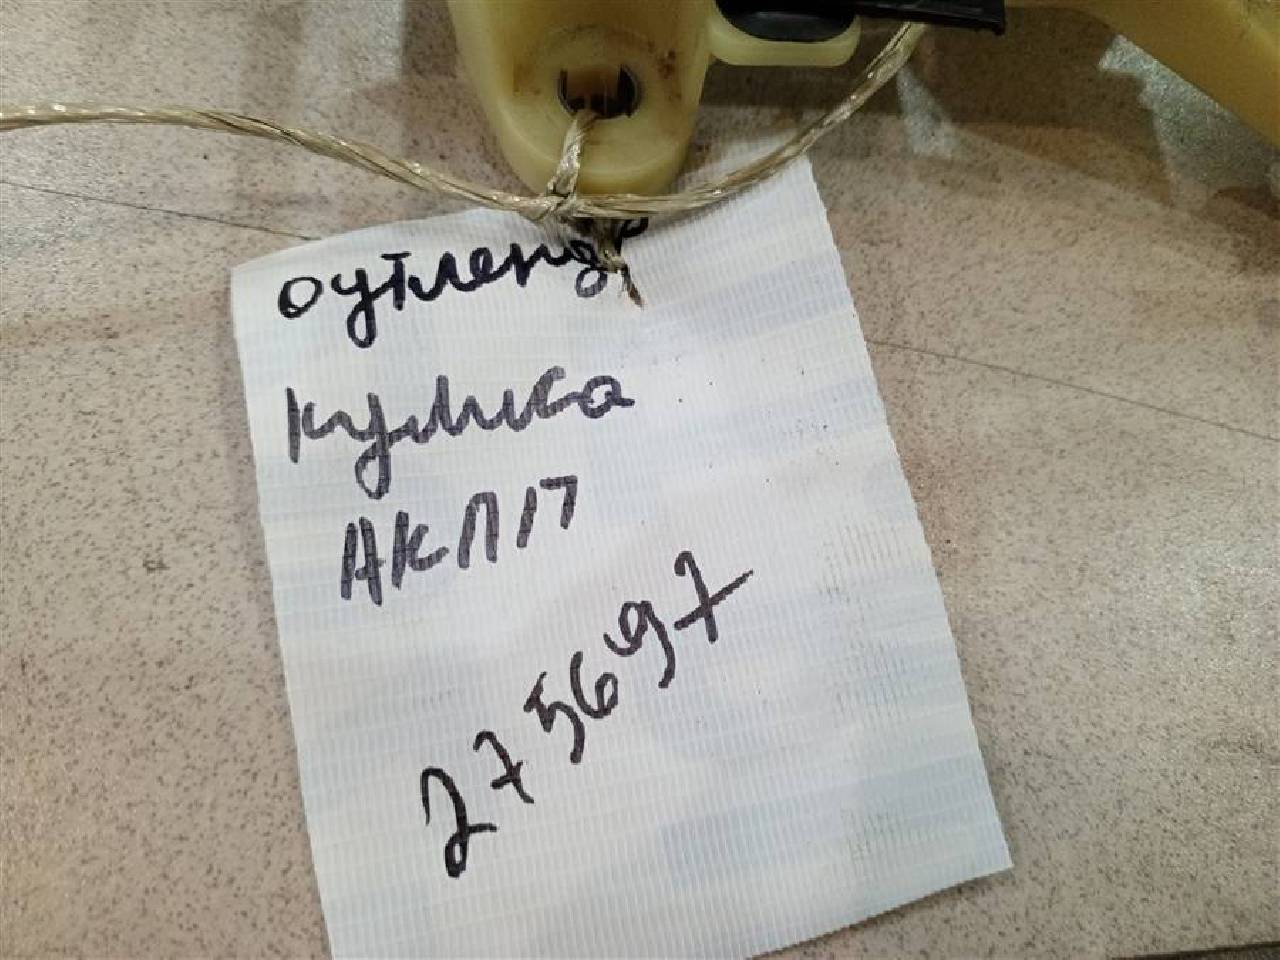 оутлендр
кулиса
АКПП
275697